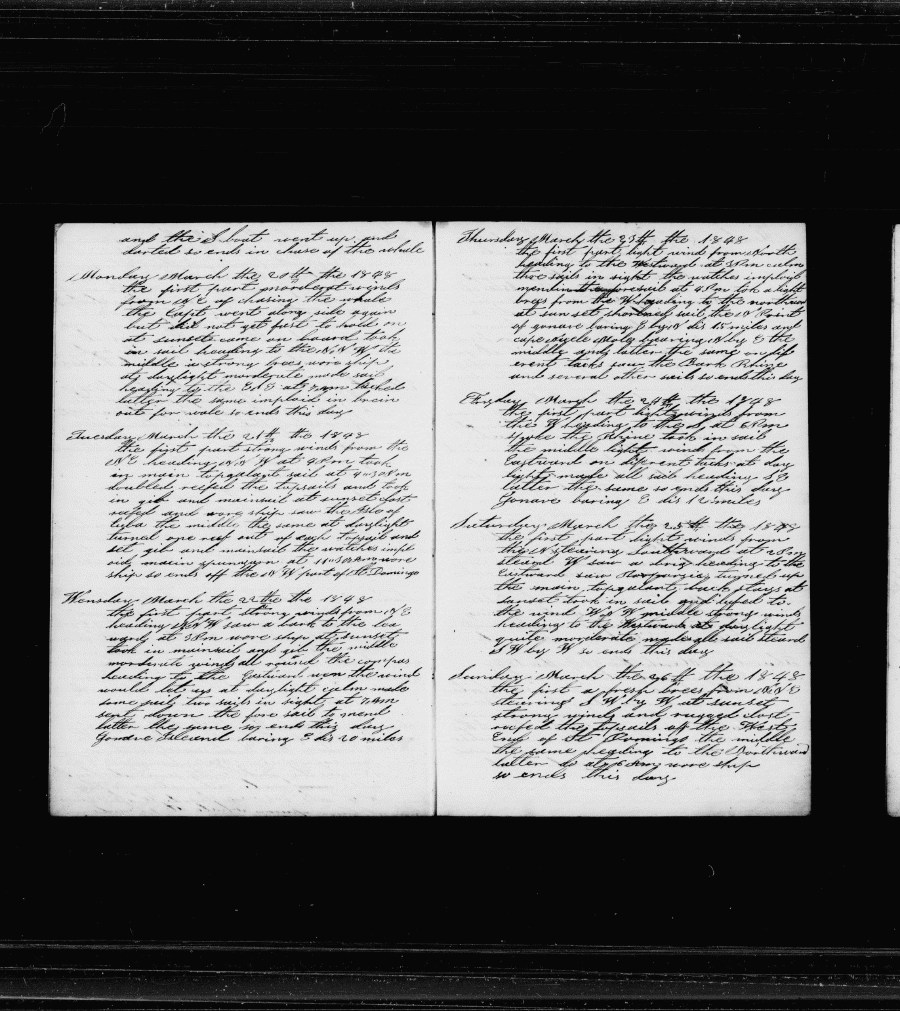 and the S boat went up and
darted so ends in chase of the whale
Monday March the 20th the 1848
the first part morderat winds
from N E of chasing the whale
the Capt went along side again
but did not get fast to hold on
at sunset came on board took
in sail heading to the N N W the
middle a strong brees wore ship
at daylight morderate made sail
heading to the E N E at 7 am tacked
latter the same imploid in
out for wale so ends this day
Tuesday March the 21th the 1848
the first part strong winds from the
N E heading N N W at 4 Pm took
in main topgalant sail at 4=30 Pm
doubled refed the topsails and took
in gib and mainsail at sunset clost
refed and wore ship saw the Isle of
the middle the same at daylight
turned one reef out of each topsail and
set gib and mainsail the watches impl
oid main spunyarn at 11=30 Am wore
ship so ends off the N W part of St Domingo
Wensday March the 22th the 1848
the first part strong winds from N E
heading N N W saw a bark to the lea
ward at 3 Pm wore ship at sunset
took in mainsail and gib the middle
morderate winds all round the compas
heading to the Eastward wen the wind
would let us at daylight calm made
some sail two sails in sight at 7 Am
sent down the fore sail to mend
latter the same so ends this day
Gonave Iileend baring E dis 20 miles
Thursday March the 23th the 1848
the first part light wind from North
heading to the Westward at 3 Pm calm
thre sails in sight the watches imploid
mendin the foresail at 4 Pm tok a light
brees from the W heading to the northward
at sun set shortened sail the N Point
of gonave baring E by N dis 15 miles and
cape Nicle Moly bearing N by E the
middle and latter the same on dif
erent tacks saw the Bark Rhine
and several other sails so ends this day
Friday March the 24th the 1848
the first part light winds from
the W heading to the S at 6 Pm
spoke the Rhine took in sail
the middle light wind from the
Eastward on diferent tacks at day
light made all sail heading S E
latter the same so ends this day
Gonave baring E dis 12 miles
Saturday March the 25th the 1848
the first part light winds from
the N steering Southward at 2 Pm
steard W saw a brig heading to the
Eastward saw turned up
the main topgalant back stays at
sunset took in sail and lufed to
the wind W N W middle strong winds
heading to the Westward at daylight
quite morderate made all sail steard
S W by W so ends this day
Sunday March the 26th the 1848
the fist a fresh brees from N N E
steering S W by W at sunset
strong winds and rugged clost
refed the topsails off the West
End of St Domingo the middle
the same heading to the Northward
latter do at 6 Am wore ship
so ends this day